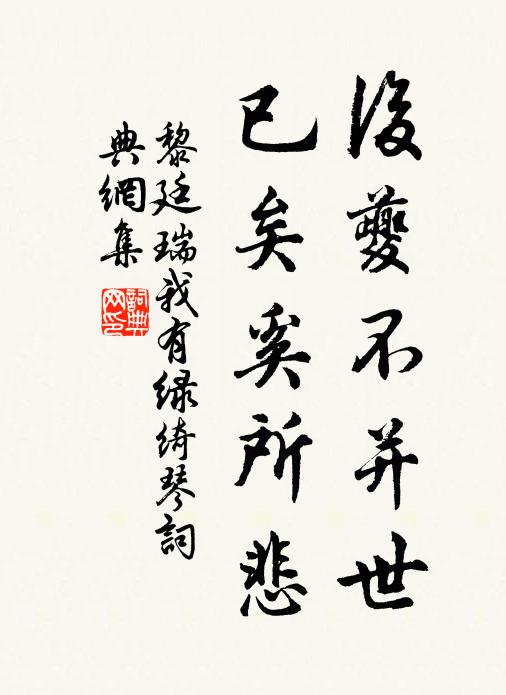 後夔不并世
已矣奚所悲
黎廷瑞我有绿绮琴詞
典網集
詞典
网印